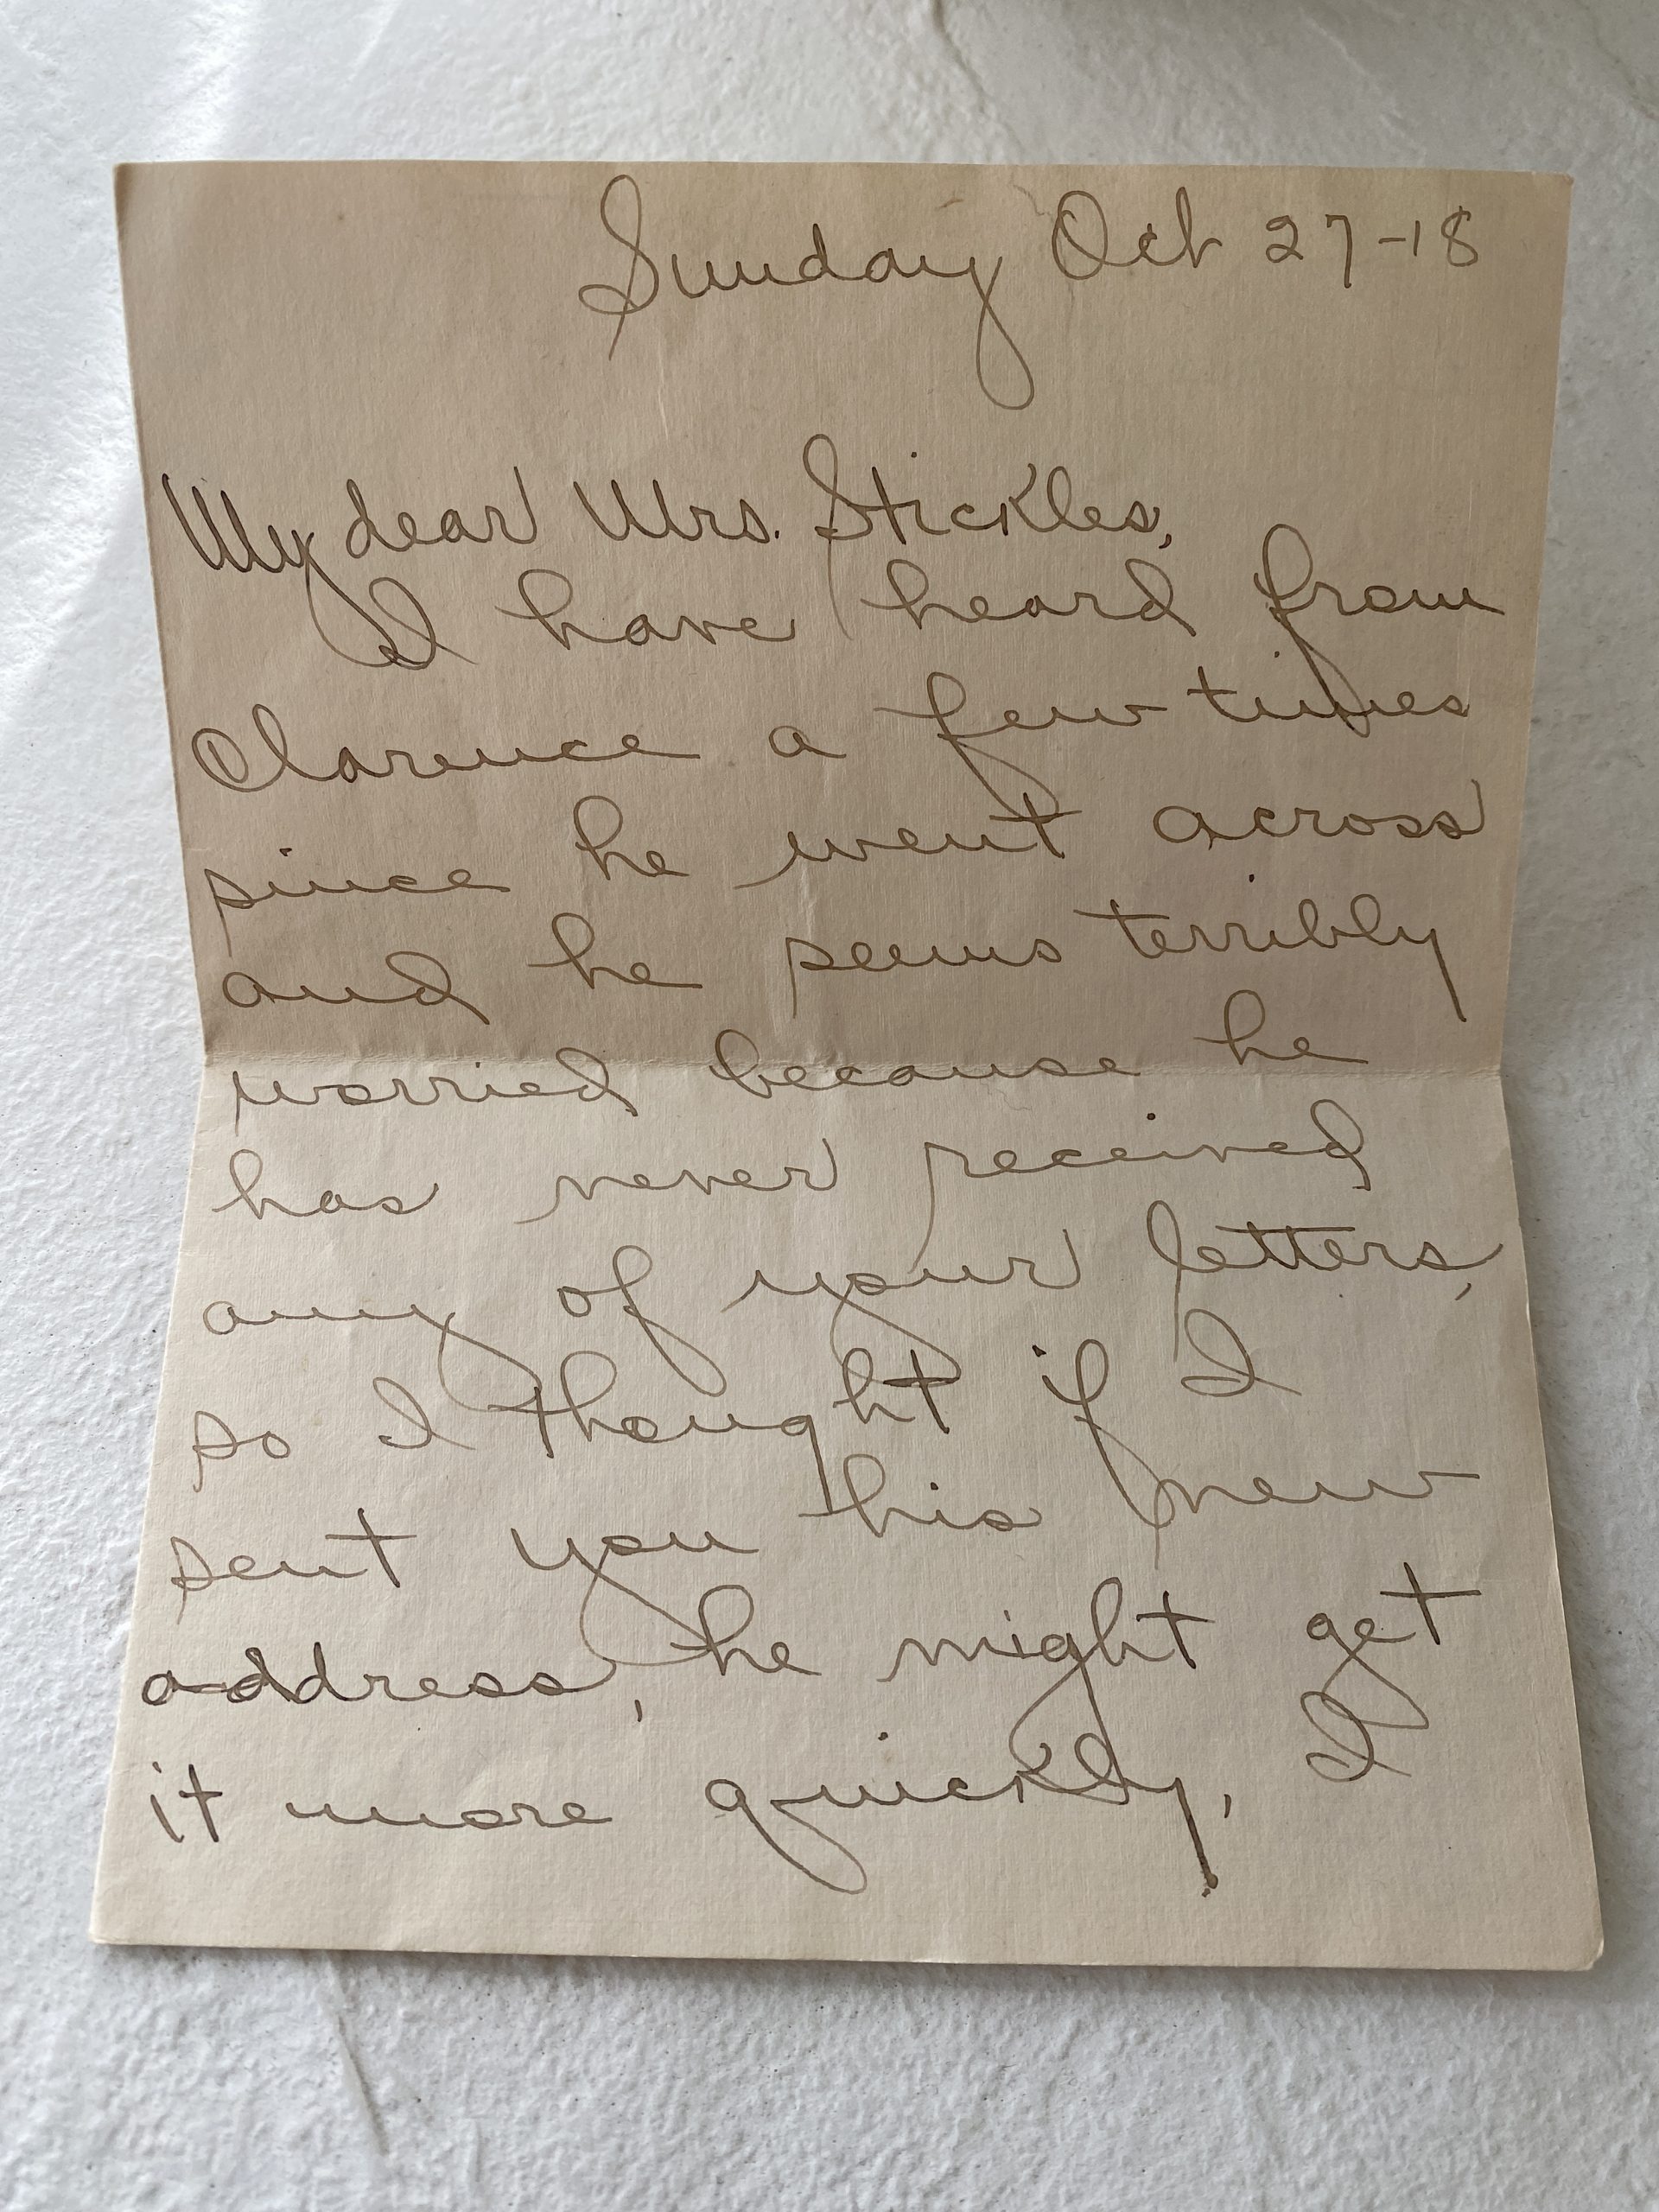 Sunday Oct 27-18
My dear Mrs. Stickles,
I have heard from
Clarence a few times
since he went across
and he seems terribly
worried because he
has never received
any of your letters,
so I thought if I
sent you his new
address, he might get
it more quickly, I